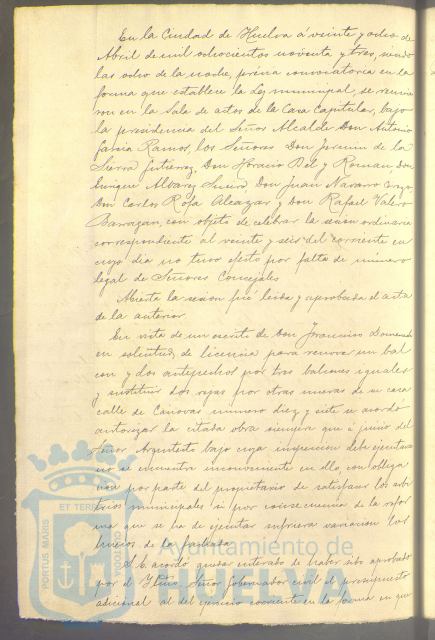 En la Ciudad de Huelva á veinte y ocho de
Abril de mil ochocientos noventa y tres, siendo
las ocho de la noche, prévia convocatoria en la
forma que establece la Ley municipal, se reunie
ron en la Sala de actos de la Casa Capitular, bajo
la presidencia del Señor Alcalde Don Antonio
García Ramos, los Señores Don Joaquin de la
Sierra Gutierrez, Don Horacio Bel y Roman Don
Enrique Alvarez Don Juan Navarro
Don Carlos Rofa Alcazar y Don Rafael Valero
Barragan, con objeto de celebrar la sesion ordinaria
correspondiente al veinte y seis del corriente en
cuyo dia no tuvo efecto por falta de número
legal de Señores Concejales
Abierta la sesion fué leida y aprobada el acta
de la anterior.
En vista de un escrito de Don Francisco
en solicitud de licencia para renovar un bal
con y dos antepechos por tres balcones iguales
y sustituir dos rejas por otras nuevas de su casa
calle de Canovas número diez y siete se acordó
autorizar la citada obra siempre que á juicio del
Señor Arquitecto bajo cuya inspeccion debe ejecutarse
no se encuentre inconveniente en ello, con obliga
cion por parte del propietario de satisfacer los arbi
trios municipales si por consecuencia de la refor
ma que se ha de ejecutar sufriera variacion los
huecos de la fachada.
S. E. acordó quedar enterado de haber sido aprobado
por el Iltmo. Señor Gobernador civil el presupuesto
adicional al del ejercicio corriente en la forma en que
PORTUS MARIS ET TERRE CUSTODIA
Ayuntamiento de
HUELVA